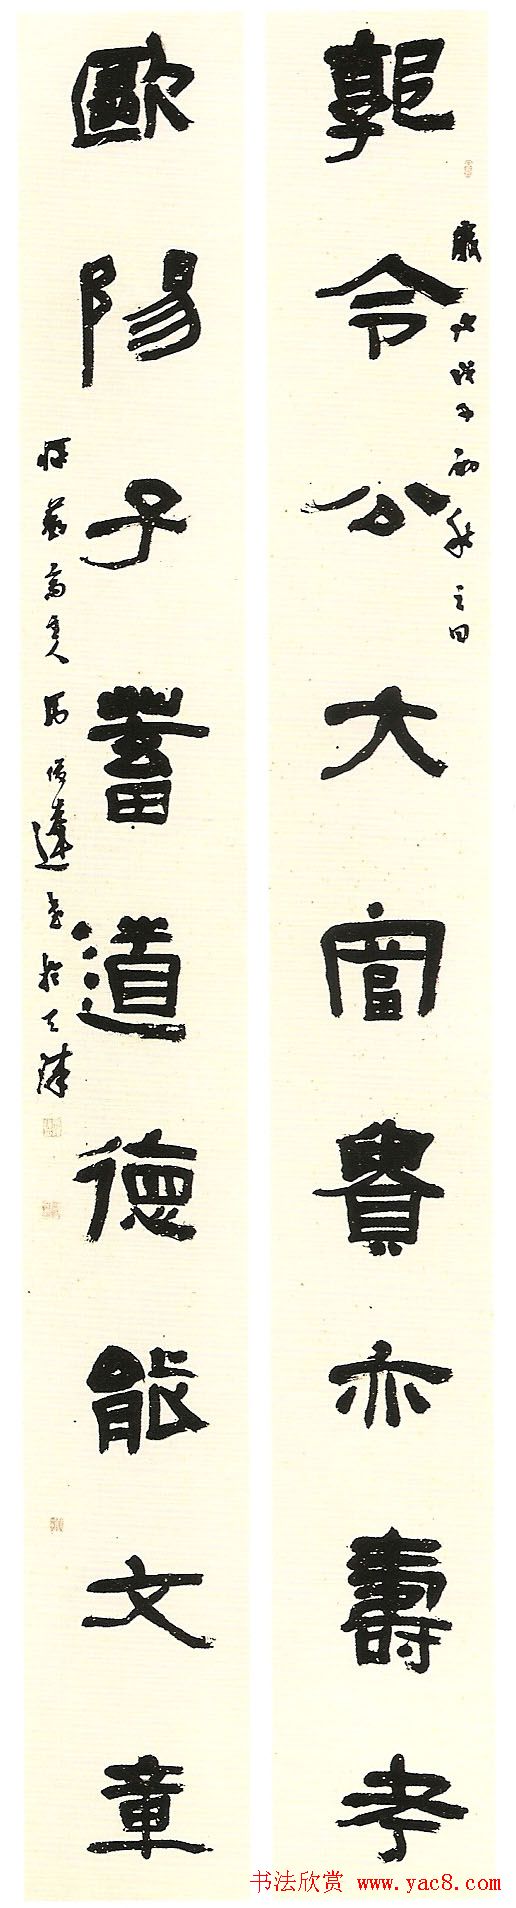 郭令公大富貴亦壽考
歲次戊子初秋之日
歐陽子蓄道德能文章
齋主人 達書於天津
书法欣赏 www.yac8.com